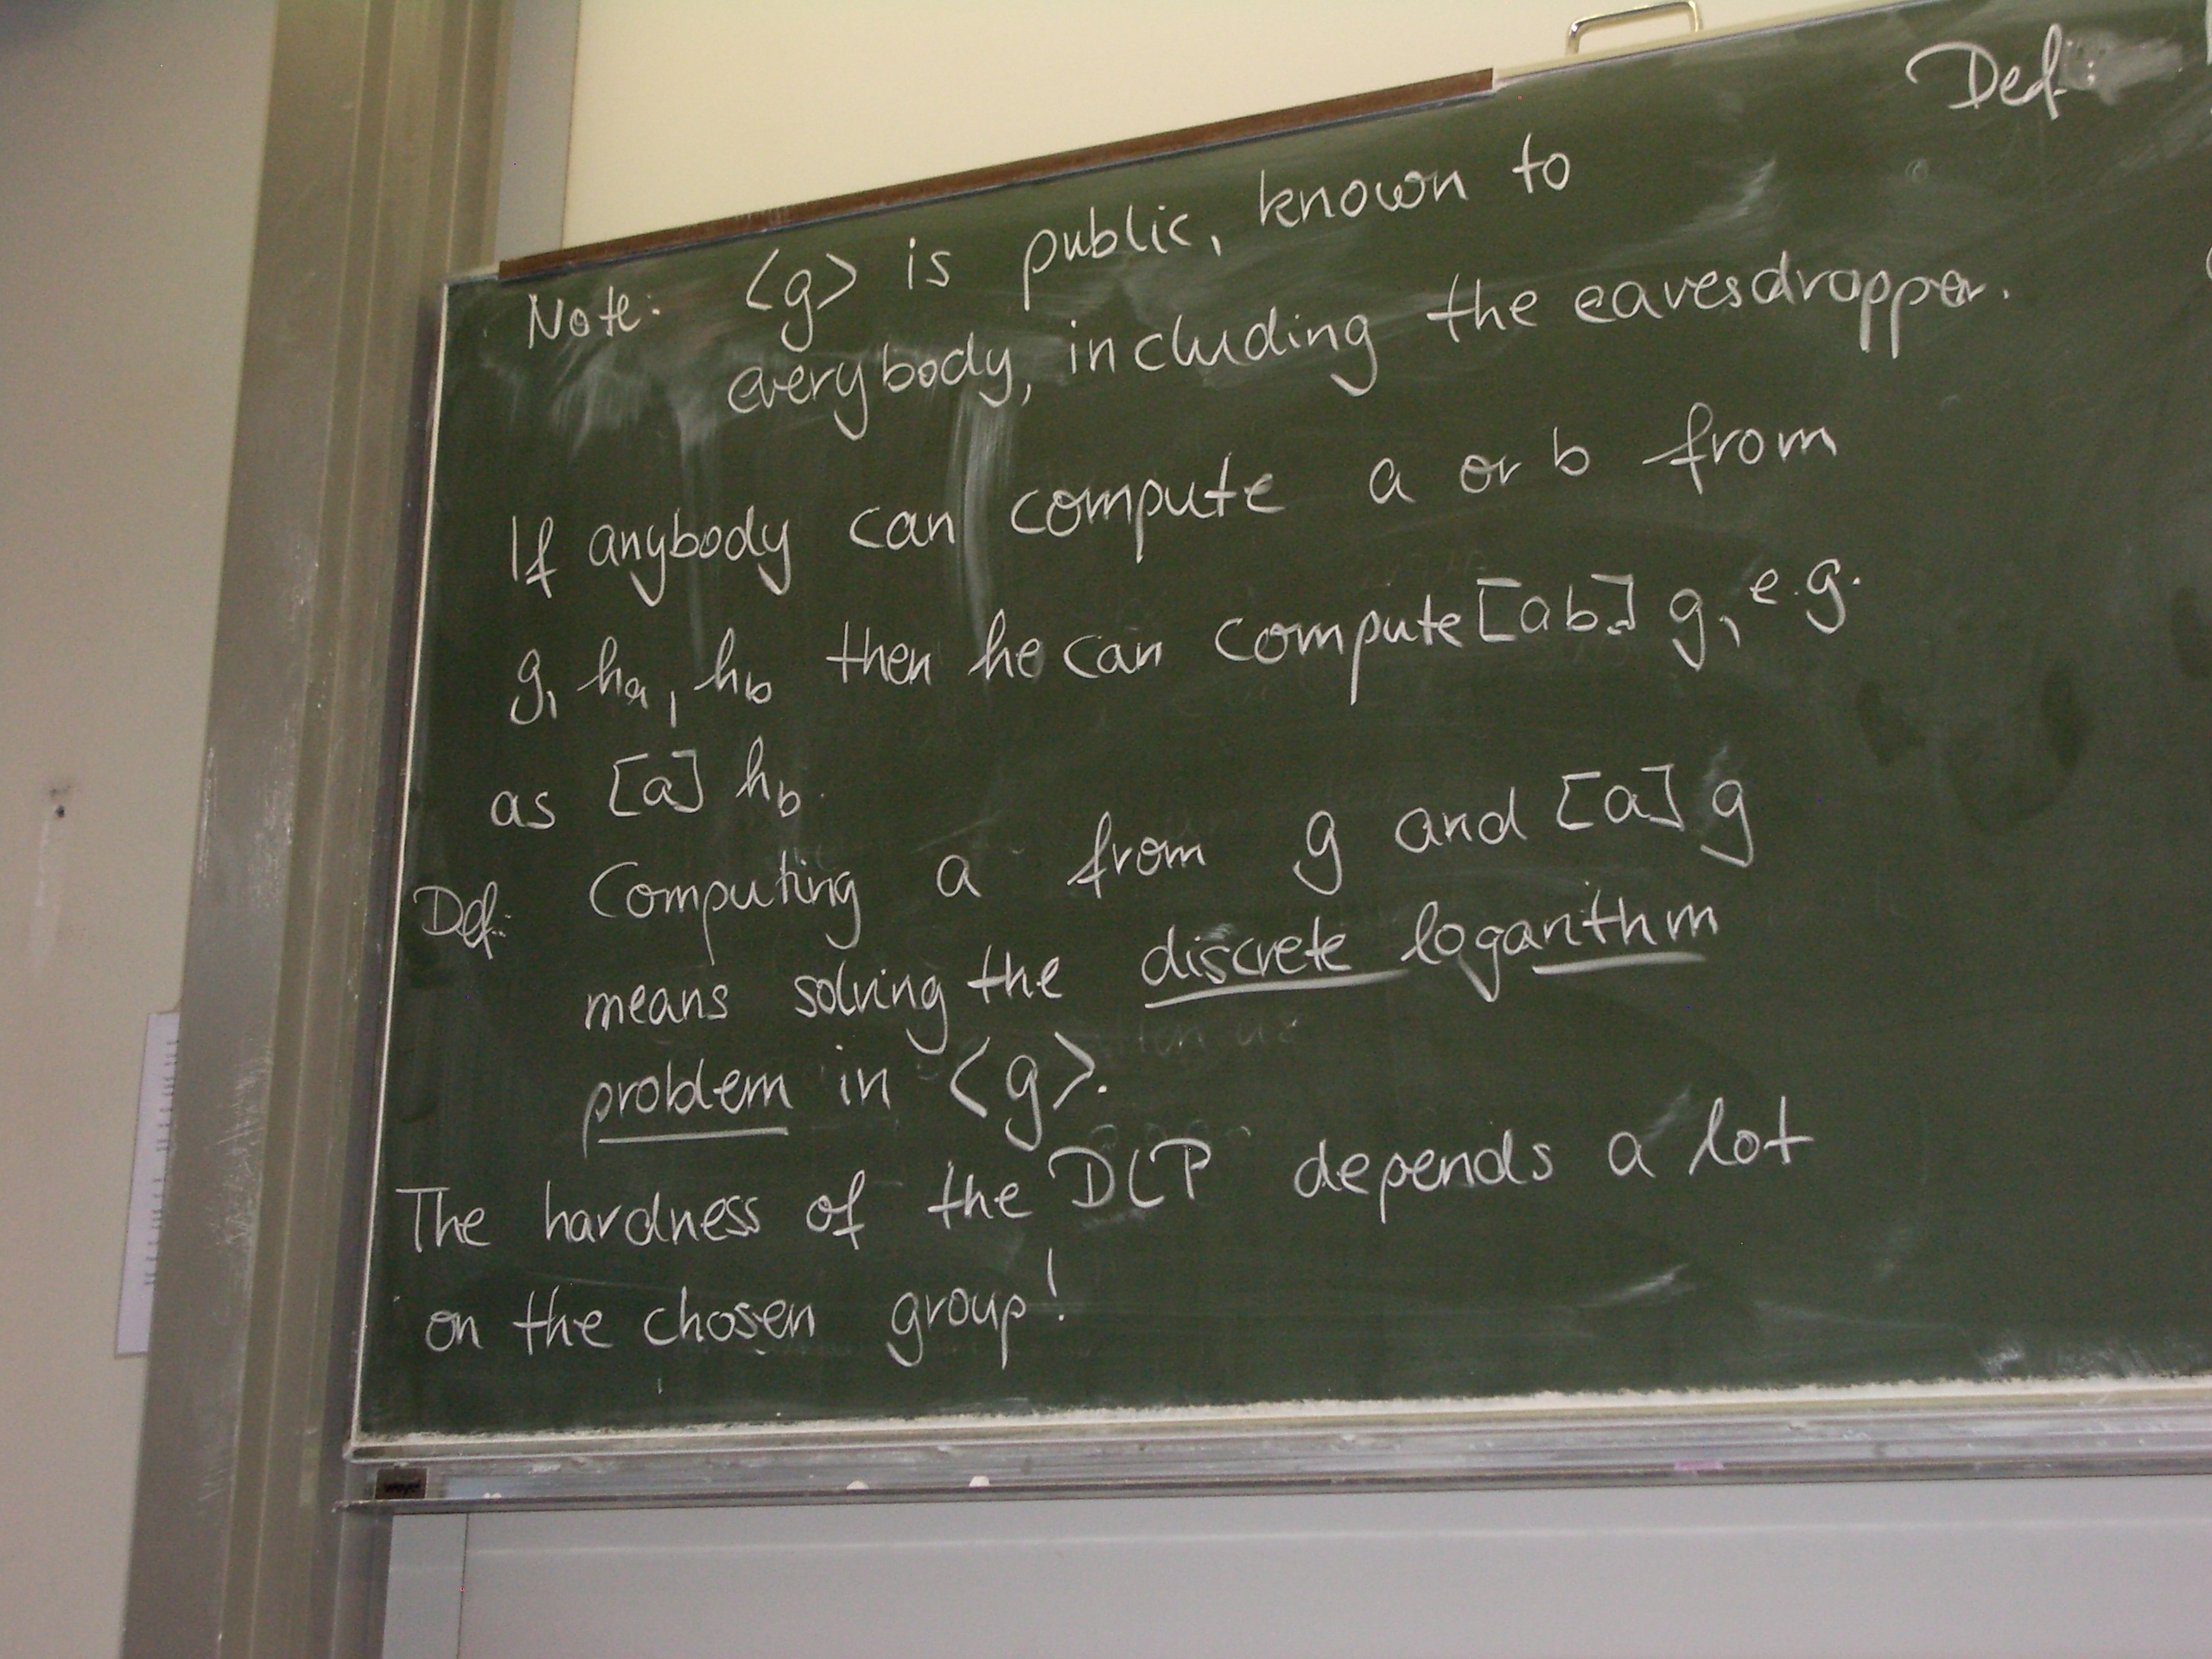 Def.:
Note: <g> is public, known to
everybody, including the eavesdropper.
If anybody can compute a or b from
g, h_a, h_b then he can compute [ab] g, e.g.
as [a] h_b.
Def.: Computing a from g and [a] g
means solving the discrete logarithm
problem in <g>.
The hardness of the DLP depends a lot
on the chosen group!